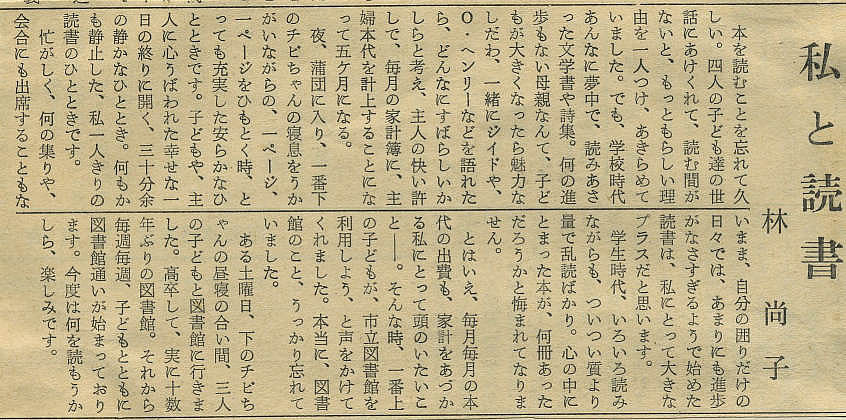 私と読書
林　尚子
　本を読むことを忘れて久
しい。四人の子ども達の世
話にあけくれて、読む間が
ないと、もっともらしい理
由を一人つけ、あきらめて
いました。でも、学校時代
あんなに夢中で、読みあさ
った文学書や詩集。何の進
歩もない母親なんて、子ど
もが大きくなったら魅力な
しだわ、一緒にジイドや、
O・ヘンリーなどを語れた
ら、どんなにすばらしいか
しらと考え、主人の快い許
しで、毎月の家計簿に、主
婦本代を計上することにな
って五ケ月になる。
　夜、蒲団に入り、一番下
のチビちゃんの寝息をうか
がいながらの、一ページ、
一ページをひもとく時、と
っても充実した安らかなひ
とときです。子どもや、主
人に心うばわれた幸せな一
日の終りに開く、三十分余
の静かなひととき。何もか
も静止した、私一人きりの
読書のひとときです。
　忙がしく、何の集りや、
会合にも出席することもな
いまま、自分の囲りだけの
日々では、あまりにも進歩
がなさすぎるようで始めた
読書は、私にとって大きな
プラスだと思います。
　学生時代、いろいろ読み
ながらも、ついつい質より
量で乱読ばかり。心の中に
とまった本が、何冊あった
だろうかと悔まれてなりま
せん。
　とはいえ、毎月毎月の本
代の出費も、家計をあづか
る私にとって頭のいたいこ
と――。そんな時、一番上
の子どもが、市立図書館を
利用しよう、と声をかけて
くれました。本当に、図書
館のこと、うっかり忘れて
いました。
　ある土曜日、下のチビち
ゃんの昼寝の合い間、三人
の子どもと図書館に行きま
した。高卒して、実に十数
年ぶりの図書館。それから
毎週毎週、子どもとともに
図書館通いが始まっており
ます。今度は何を読もうか
しら、楽しみです。